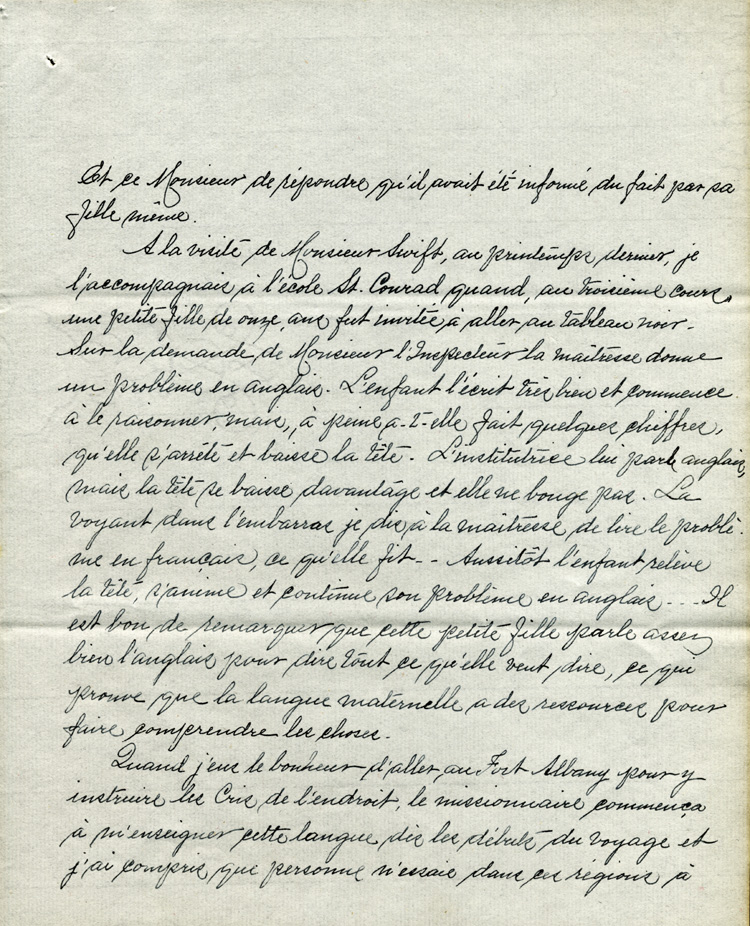 Et ce Monsieur de répondre qu'il avait été informé du fait par sa
fille même.
A la visite de Monsieur Swift, au printemps dernier, je
l'accompagnais à l'école St. Conrad, quand, au troisième cours,
une petite fille de onze ans fut invitée à aller au tableau noir.
Sur la demande de Monsieur l'Inspecteur la maîtresse donne
un problème en anglais. L'enfant l'écrit très bien et commence
à le raisonner, mais, à peine a-t-elle fait quelques chiffres,
qu'elle s'arrête et baisse la tête. L'institutrice lui parle anglais,
mais la tête se baisse davantage et elle ne bouge pas. La
voyant dans l'embarras je dis à la maîtresse de lire le problè-
me en français, ce qu'elle fit.. Aussitôt l'enfant relève
la tête, s'anime et continue son problème en anglais... Il
est bon de remarquer que cette petite fille parle assez
bien l'anglais pour dire tout ce qu'elle veut dire, ce qui
prouve que la langue maternelle a des ressources pour
faire comprendre les choses.
Quand j'eus le bonheur d'aller au Fort Albany pour y
instruire les Cris de l'endroit, le missionnaire commença
à m'enseigner cette langue dès les débuts du voyage et
j'ai compris que personne n'essaie dans ces régions à